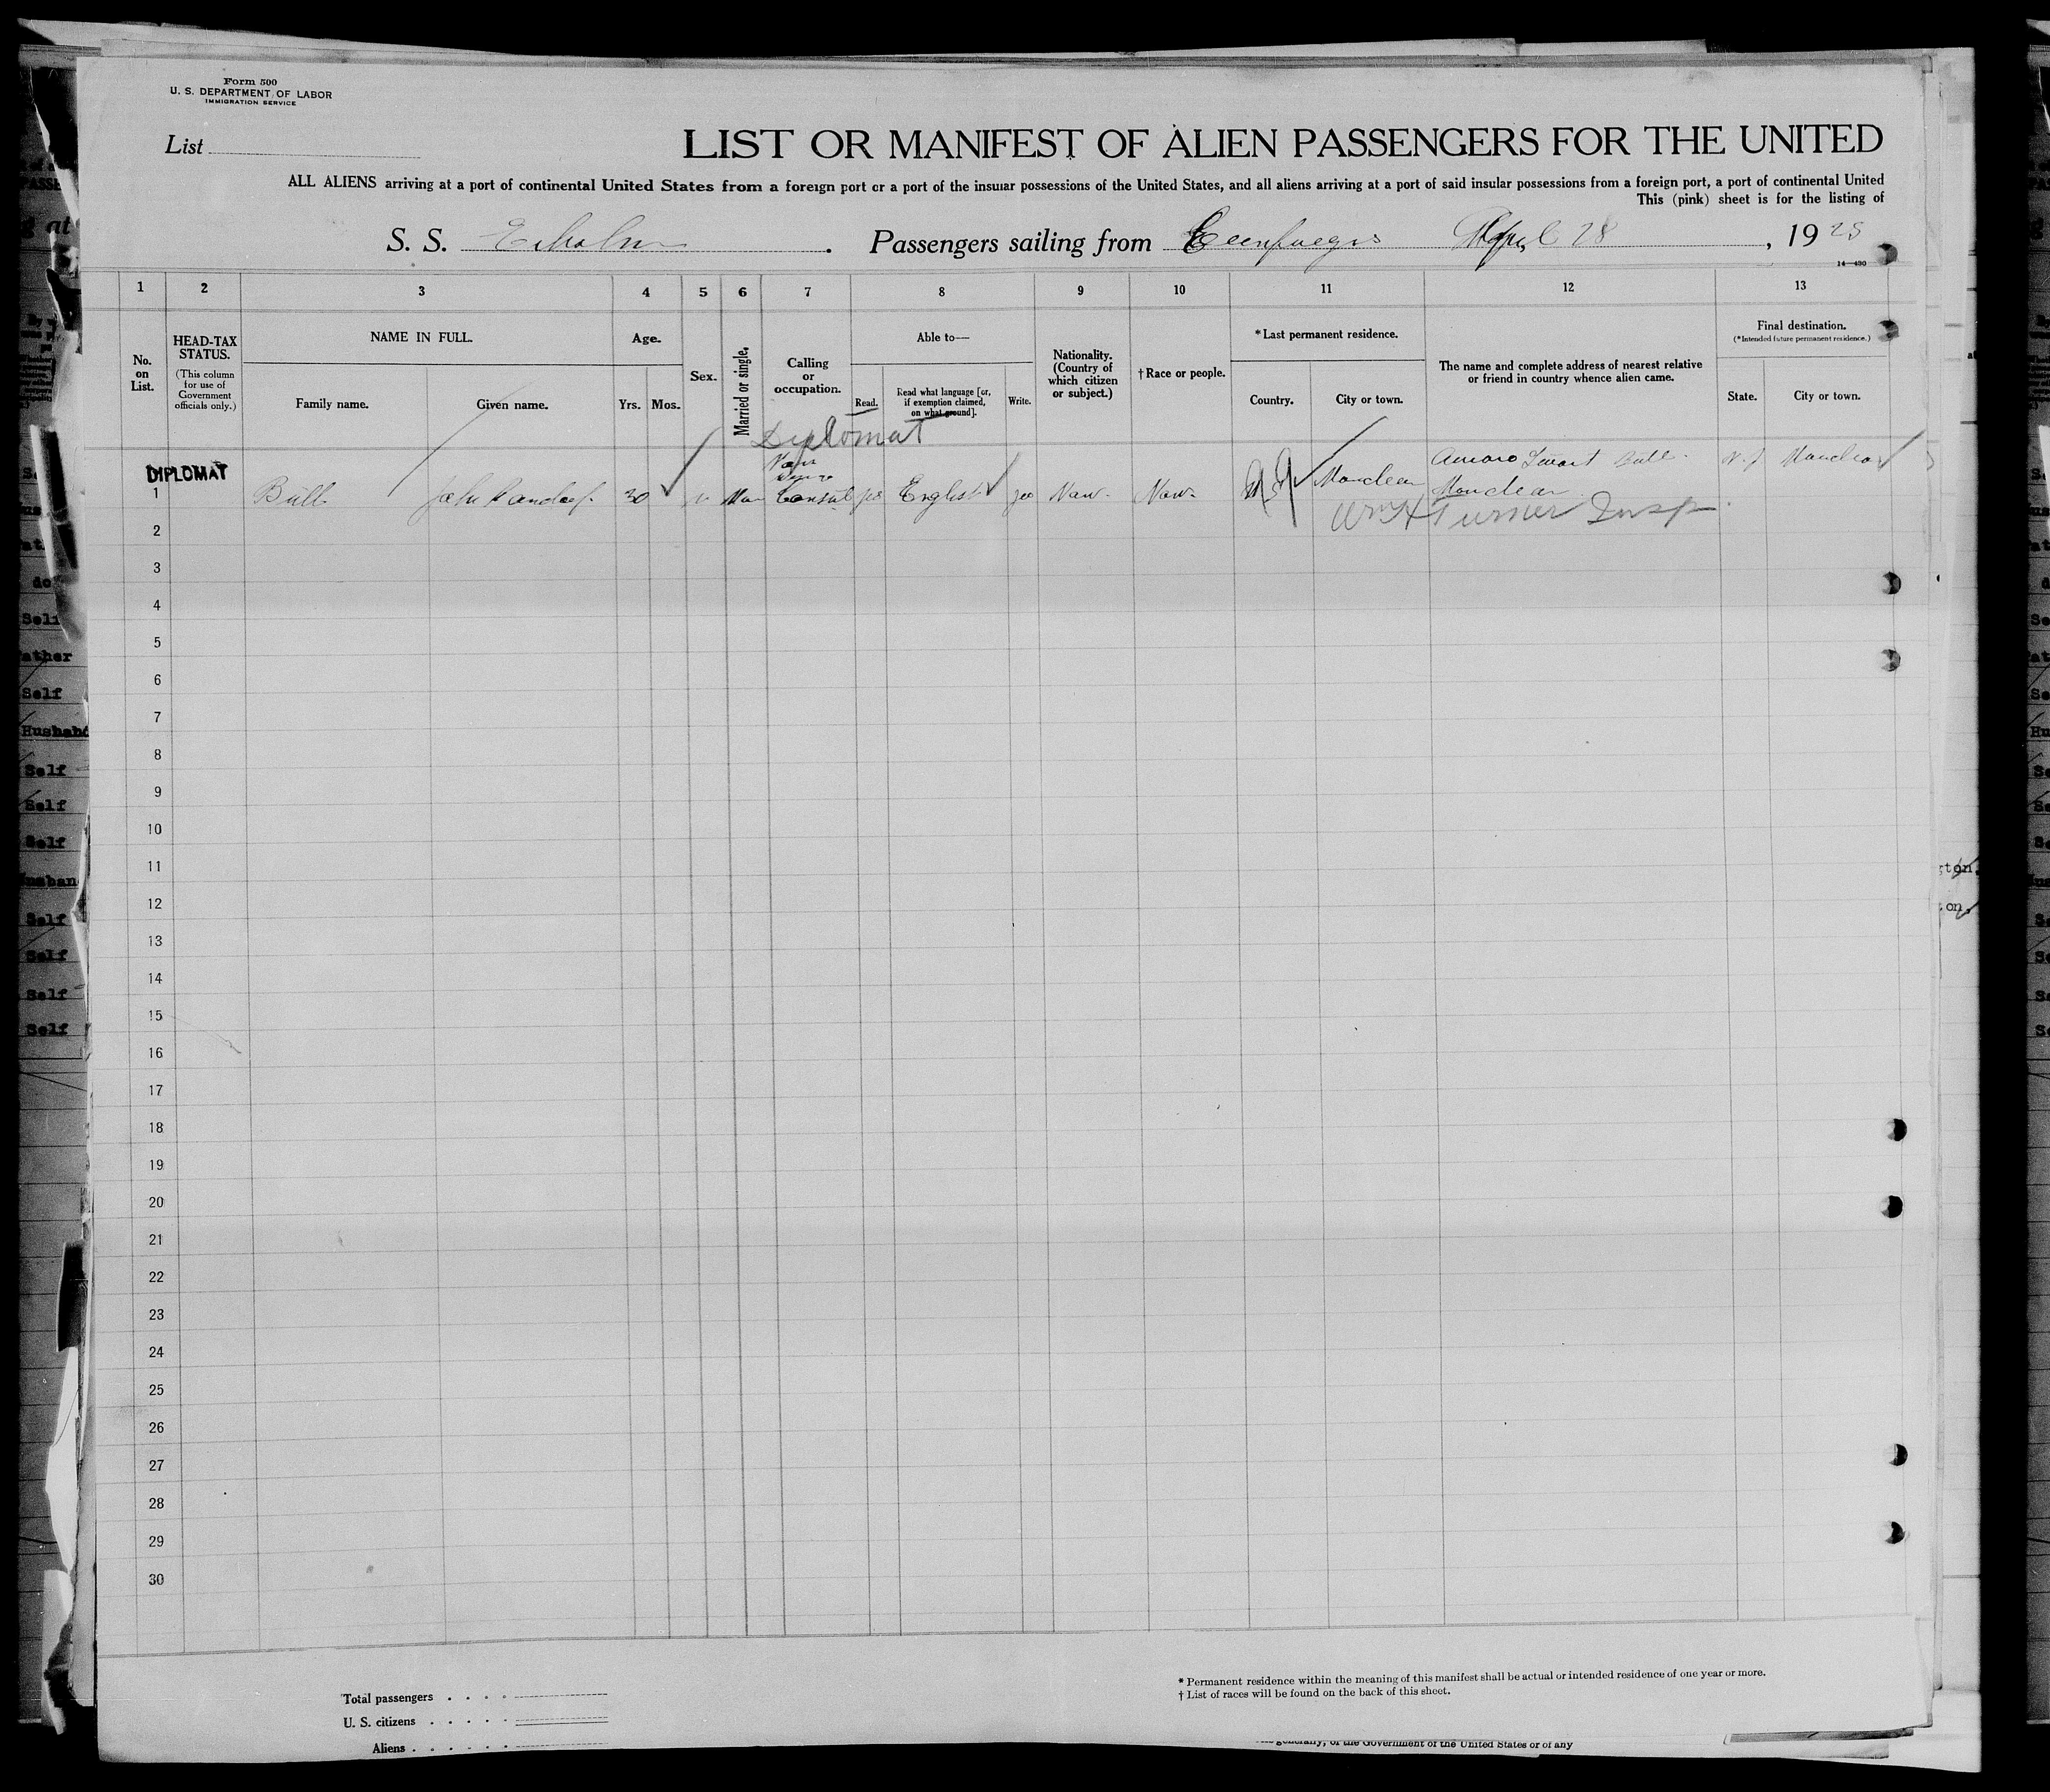 Form 500
U. S. DEPARTMENT OF LABOR
IMMIGRATION SERVICE
List
LIST OR MANIFEST OF ALIEN PASSENGERS FOR THE UNITED
ALL ALIENS arriving at a port of continental United States from a foreign port or a port of the insular possessions of the United States, and all aliens arriving at a port of said insular possessions from a foreign port, a port of continental United
This (pink) sheet is for the listing of
S. S. Passengers sailing from April 28, 1925
14—430
1 2 3 4 5 6 7 8 9 10 11 12 13
No. on List.
HEAD-TAX STATUS.
(This column for use of Government officials only.)
NAME IN FULL.
Family name. Given name.
Age.
Yrs. Mos.
Sex.
Married or single.
Calling or occupation.
Able to—
Read. Read what language [or, if exemption claimed, on what ground]. Write.
Nationality. (Country of which citizen or subject.)
† Race or people.
* Last permanent residence.
Country. City or town.
The name and complete address of nearest relative or friend in country whence alien came.
Final destination.
(* Intended future permanent residence.)
State. City or town.
Diplomat
DIPLOMAT
1 Bull John 30 Consul yes English yes Norw. Norw. Bull N.J.
Wm H Turner Insp.
2
3
4
5
6
7
8
9
10
11
12
13
14
15
16
17
18
19
20
21
22
23
24
25
26
27
28
29
30
* Permanent residence within the meaning of this manifest shall be actual or intended residence of one year or more.
† List of races will be found on the back of this sheet.
Total passengers
U. S. citizens
Aliens
generally, or the Government of the United States or of any
Self
Husband
Self
Self
Self
Self
Self
Self
Self